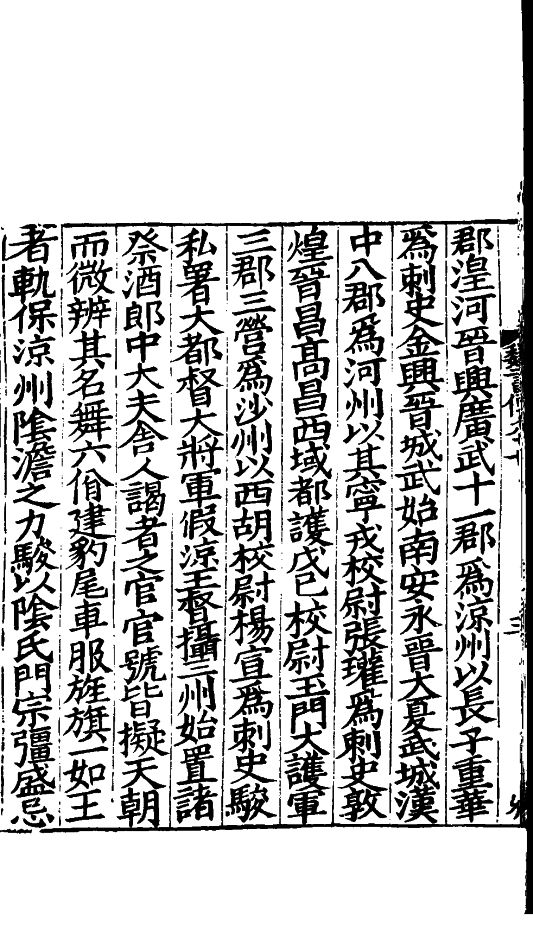 郡湟河晉興廣武十一郡爲涼州以長子重華
爲刺史金興晉城武始南安永晉大夏武城漢
中八郡爲河州以其寧戎校尉張瓘爲刺史敦
煌晉昌高昌西域都護戊己校尉玉門大護軍
三郡三營爲沙州以西胡校尉楊宣爲刺史駿
私署大都督大將軍假涼王督攝三州始置諸
祭酒郎中大夫舍人謁者之官官號皆擬天朝
而微辨其名舞六佾建豹尾車服旌旗一如王
者軌保涼州陰澹之力駿以陰氏門宗彊盛忌